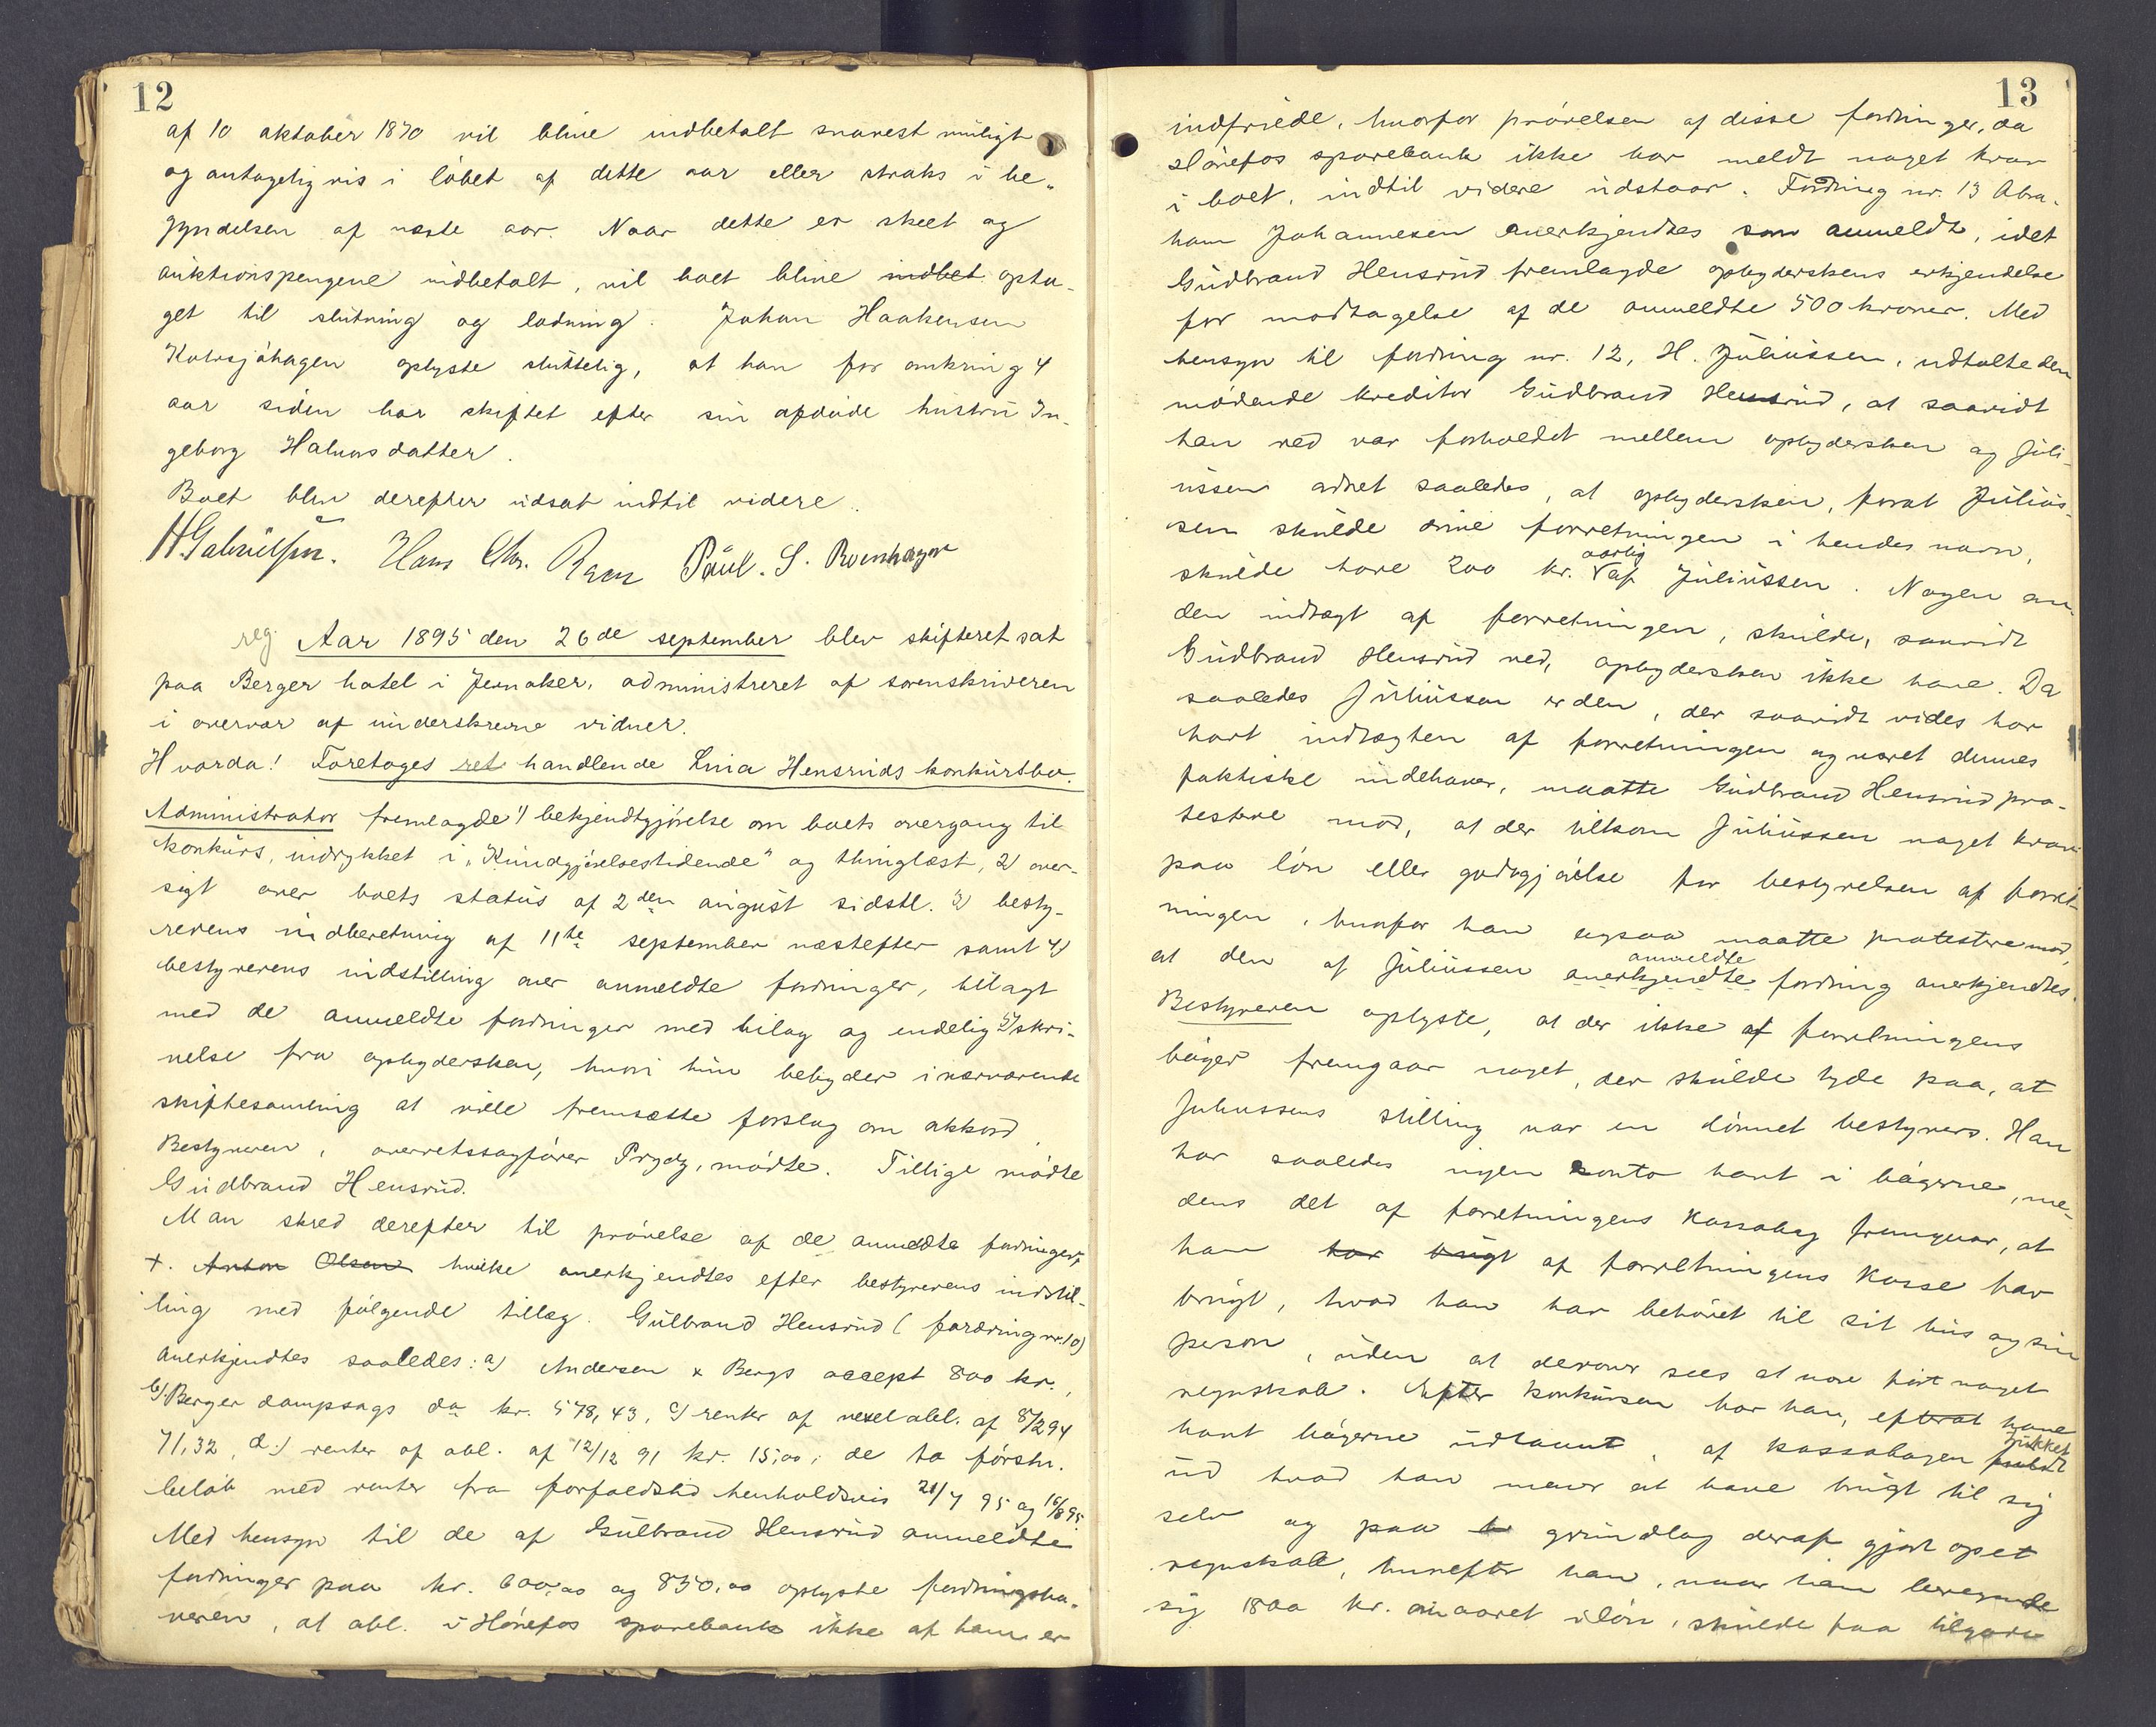 12
af 10 oktober 1890 vil blive indbetalt snarest muligt
og antagelig vis i løbet af dette aar eller straks i be-
gyndelsen af næste aar. Naar dette er skeet og
auktionspengene indbetalt, vil boet blive indbet. opta-
get til slutning og lodning. Johan Haakensen
oplyste sluttelig, at han for omkring 4
aar siden har skiftet efter sin afdøde hustru In-
geborg Halvorsdatter.
Boet blev derefter udsat indtil videre.
H Gabrielsen. Hans Chr. Paul. S. Roenhagen
reg. Aar 1895 den 26de september blev skifteret sat
paa Berger hotel i Jevnaker, administreret af sorenskriveren
i overvær af underskrevne vidner.
Hvorda! Foretoges ret handlende Lina Hensruds konkursbo.
Administrator fremlagde 1) bekjendtgjørelse om boets overgang til
konkurs, indrykket i "Kundgjørelsestidende" og thinglæst, 2) over-
sigt over boets status af 2den august sidstl. 3) besty-
rerens indberetning af 11te september næstefter samt 4)
bestyrerens indstilling over anmeldte fordringer, bilagt
med de anmeldte fordringer med bilag og endelig 5) skri-
velse fra opbydersken, hvori hun bebyder i nærværende
skiftesamling at ville fremsætte forslag om akkord.
Bestyreren, overretssagfører Prydz, mødte. Tillige mødte
Gudbrand Hensrud.
Man skred derefter til prøvelse af de anmeldte fordringer,
+. Anton Olsen hvilke anerkjendtes efter bestyrerens indstil-
ling med følgende tillæg. Gulbrand Hensrud (fordring nr. 10)
anerkjendtes saaledes: a) Andersen & Bergs accept 800 kr.,
b) Berger dampsags do kr. 578,43, c) renter af vexelobl. af 8/2 94
71,32, d.) renter af obl. af 12/12 91 kr. 15,00; de to førstn.
beløb med renter fra forfaldstid henholdsvis 21/7 95 og 16/8 95
Med hensyn til de af Gulbrand Hensrud anmeldte
fordringer paa kr. 600,00 og 850,00 oplyste fordringsha-
veren, at obl. i Hønefos sparebank ikke af ham er
13
indfriede, hvorfor prøvelsen af disse fordringer, da
Hønefos sparebank ikke har meldt noget krav
i boet, indtil videre udstaar. Fordring nr. 13 Abra-
ham Johannesen anerkjendtes som anmeldt, idet
Gudbrand Hensrud fremlagde opbyderskens erkjendelse
for modtagelse af de anmeldte 500 kroner. Med
hensyn til fordring nr. 12, H. Juliussen, udtalte den
mødende kreditor Gudbrand Hensrud, at saavidt
han ved var forholdet mellem opbydersken og Juli-
ussen ordnet saaledes, at opbydersken, forat Julius-
sen skulde drive forretningen i hendes navn,
skulde have 200 kr. aarlig af Juliussen. Nogen an-
den indtægt af forretningen, skulde, saavidt
Gudbrand Hensrud ved, opbydersken ikke have. Da
saaledes Juliussen er den, der saavidt vides har
havt indtægten af forretningen og været dennes
faktiske indehaver, maatte Gudbrand Hensrud pro-
testere mod, at der tilkom Juliussen noget krav
paa løn eller godtgjørelse for bestyrelsen af forret-
ningen, hvorfor han ogsaa maatte protestere mod,
at den af Juliussen anmeldte anerkjendte fordring anerkjendtes.
Bestyreren oplyste, at der ikke af forretningens
bøger fremgaar noget, der skulde tyde paa, at
Juliussens stilling var en lønnet bestyrers. Han
har saaledes ingen konto havt i bøgerne, me-
dens det af forretningens kassabog fremgaar, at
han har brugt af forretningens kasse har
brugt, hvad han har behøvet til sit hus og sin
person, uden at derover sees at være ført noget
regnskab. Efter konkursen har han, efterat have
havt bøgerne udlaant, af kassabogen trukket
ud hvad han mener at have brugt til sig
selv og paa grundlag deraf gjort opet
regnskab, hvorefter han, naar han beregnede
sig 1800 kr. om aaret i løn, skulde faa tilgode